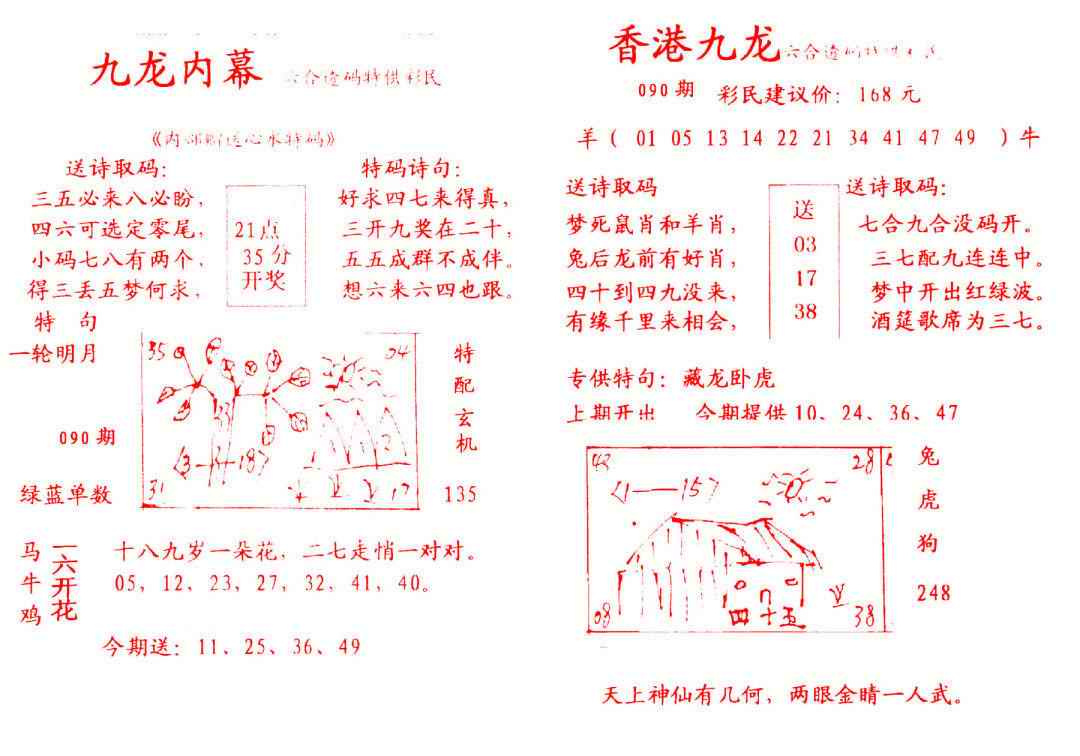 九龙内幕 六合透码特供彩民
《内部赠送心水特码》
送诗取码:
三五必来八必盼，
四六可选定零尾，
小码七八有两个，
得三丢五梦何求，
21点
35分
开奖
特码诗句:
好求四七来得真，
三开九奖在二十，
五五成群不成伴。
想六来六四也跟。
特 句
一轮明月
090期
绿蓝单数
35
04
31
17
特
配
玄
机
135
马
牛
鸡
一六开花
十八九岁一朵花，二七走悄一对对。
05，12，23，27，32，41，40。
今期送: 11、25、36、49
香港九龙 六合透码特供
090期 彩民建议价: 168元
羊( 01 05 13 14 22 21 34 41 47 49 )牛
送诗取码
梦死鼠肖和羊肖，
兔后龙前有好肖，
四十到四九没来，
有缘千里来相会，
送
03
17
38
送诗取码:
七合九合没码开。
三七配九连连中。
梦中开出红绿波。
酒筵歌席为三七。
专供特句: 藏龙卧虎
上期开出 今期提供10、24、36、47
42
28
08
四十五
38
兔
虎
狗
248
天上神仙有几何，两眼金睛一人武。